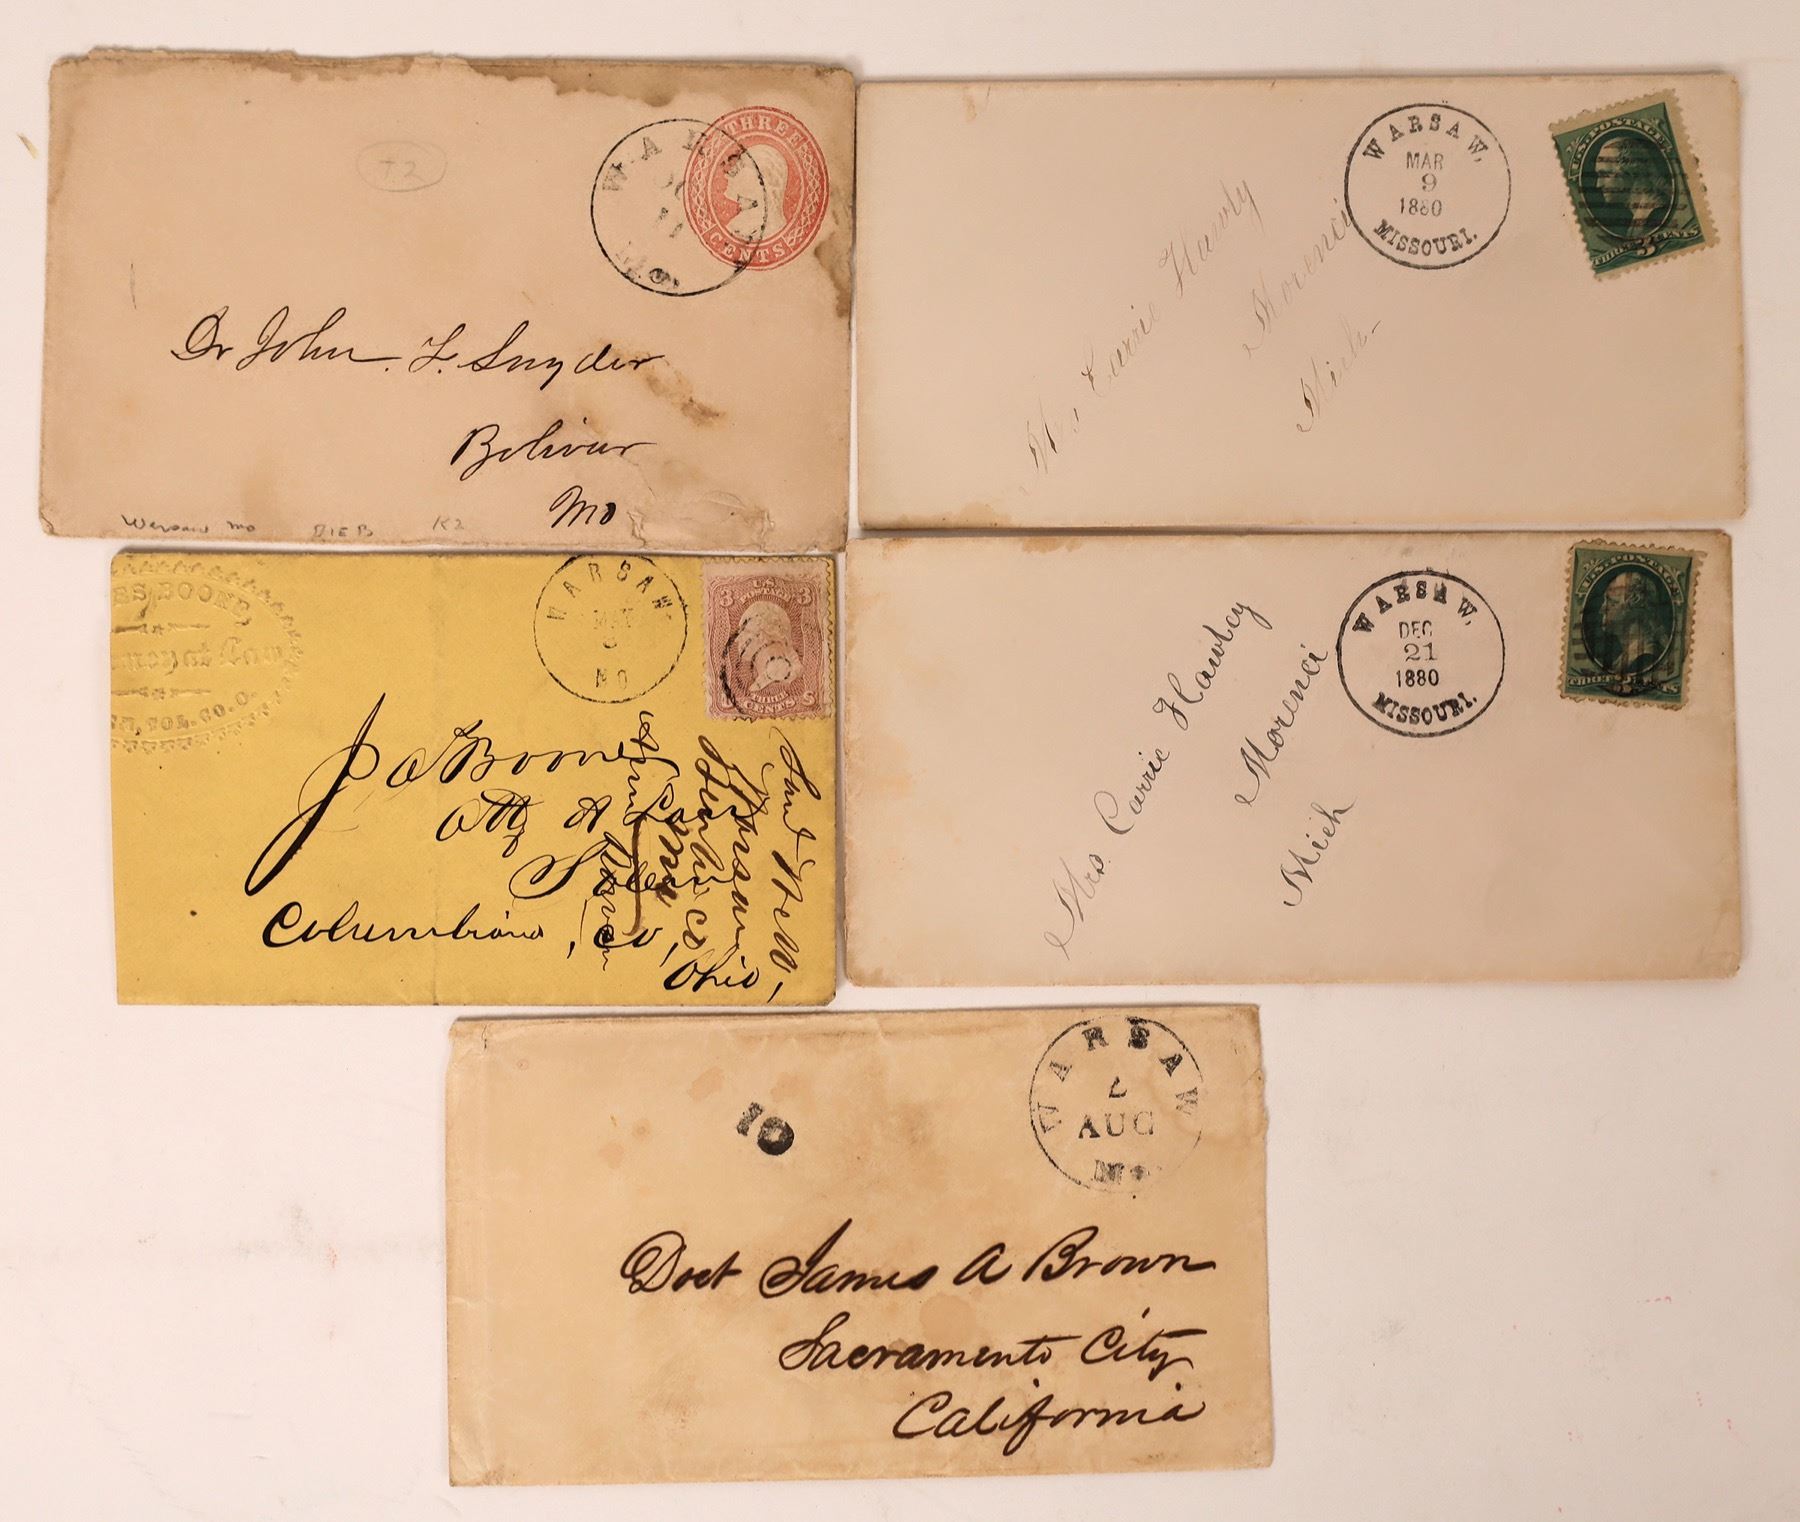 T2
THREE
CENTS
WARSAW
11
Mo
Dr John. F. Snyder
Bolivar
Mo
Warsaw Mo DIE B K2
WARSAW,
MAR
9
1880
MISSOURI.
U.S. POSTAGE
THREE 3 CENTS
Mrs Carrie Hawley
Morenci
Mich-
BS BOONE,
rney at Law
M, COL. CO. O.
WARSAW
MAY
MO
U.S.
3 POSTAGE 3
THREE
CENTS
J A Boone
Atty At Law
Salem
Columbiana, Co,
Ohio,
Warsaw
WARSAW,
DEC
21
1880
MISSOURI.
U.S. POSTAGE
THREE CENTS
Mrs. Carrie Hawley
Morenci
Mich
WARSAW
AUG
Mo
10
Doct James A Brown
Sacramento City
California